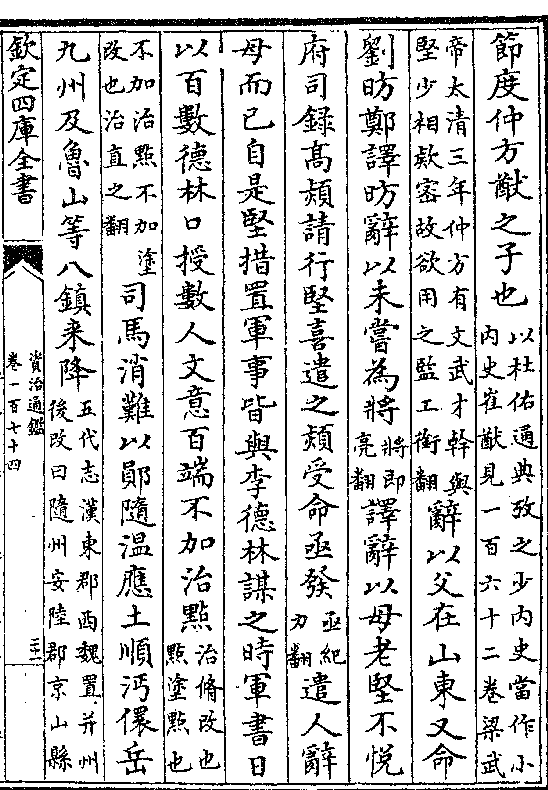 節度仲方猷之子也以杜佑通典攷之少内史當作小内史崔猷見一百六十二卷梁武
帝太清三年仲方有文武才幹與堅少相欵密故欲用之監工銜翻辭以父在山東又命
劉昉鄭譯昉辭以未嘗為將將即亮翻譯辭以母老堅不悦
府司錄髙熲請行堅喜遣之熲受命亟發亟紀力翻遣人辭
母而已自是堅措置軍事皆與李德林謀之時軍書日
以百數德林口授數人文意百端不加治點治脩改也點塗點也
不加治點不加塗改也治直之翻司馬消難以鄖隨温應土順沔儇岳
九州及魯山等八鎮来降五代志漢東郡西魏置并州後改曰隨州安陸郡京山縣
欽定四庫全書
資治通鑑
卷一百七十四
三十二